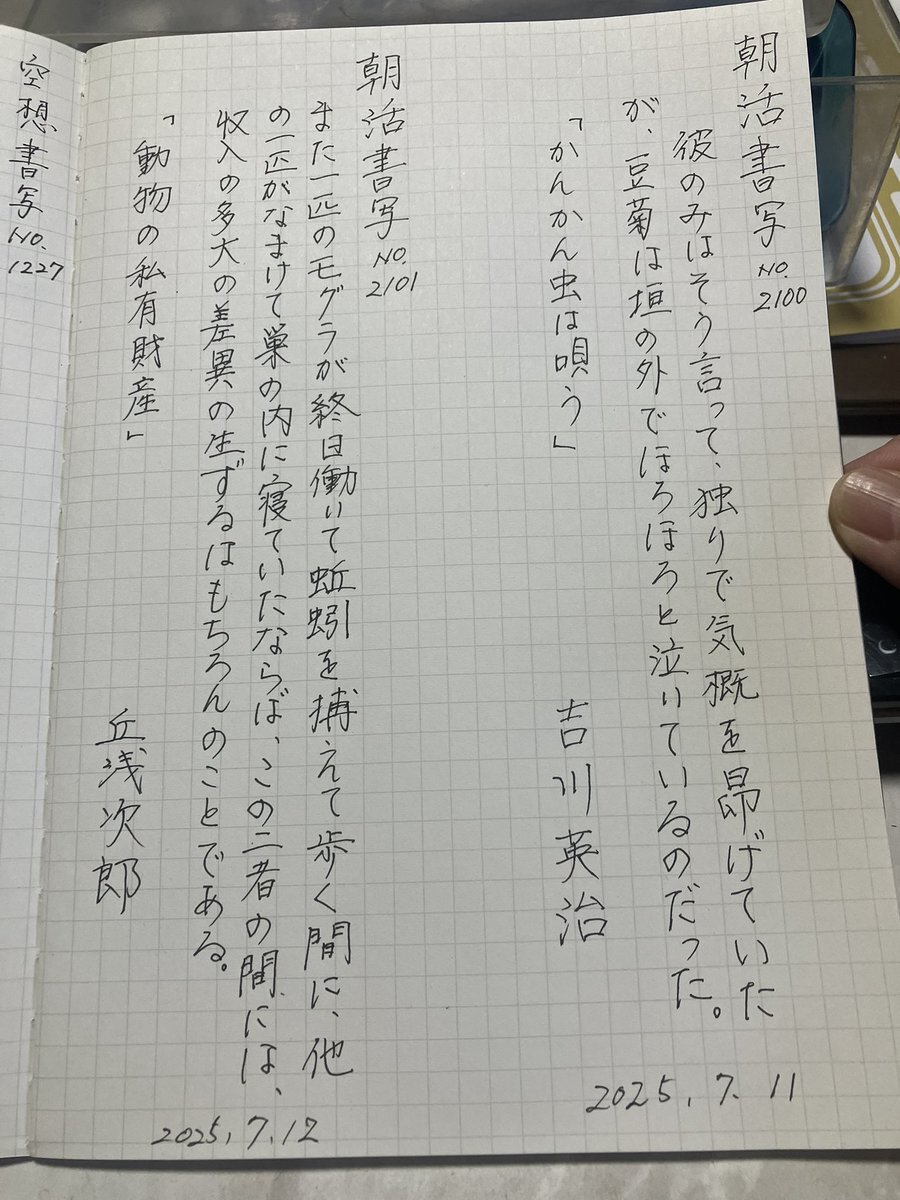 朝活書写 NO. 2100
彼のみはそう言って、独りで気概を昂げていた
が、豆菊は垣の外でほろほろと泣いているのだった。
「かんかん虫は唄う」
吉川英治
2025.7.11
朝活書写 NO. 2101
また一匹のモグラが終日働いて蚯蚓を捕えて歩く間に、他
の一匹がなまけて巣の内に寝ていたならば、この二者の間には、
収入の多大の差異の生ずるはもちろんのことである。
「動物の私有財産」
丘浅次郎
2025.7.12
空想書写 NO. 1227